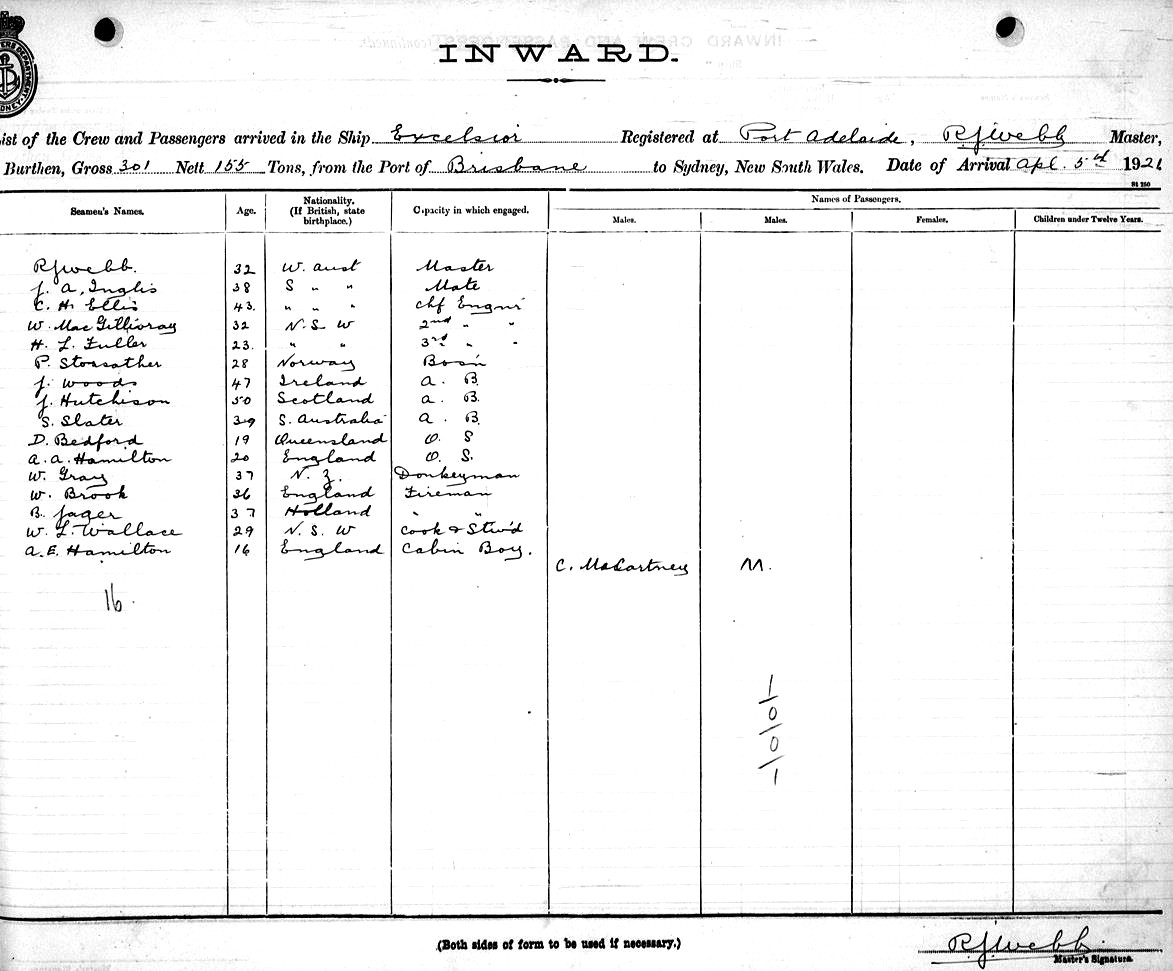 INWARD.
ist of the Crew and Passengers arrived in the Ship Excelsior Registered at Port Adelaide, R J Webb Master,
Burthen, Gross 301 Nett 155 Tons, from the Port of Brisbane to Sydney, New South Wales. Date of Arrival Apl. 5th 1921
Seamen's Names. Age. Nationality. (If British, state birthplace.) Capacity in which engaged. Names of Passengers.
Males. Males. Females. Children under Twelve Years.
R J Webb. 32 W. Aust Master
J. A. Inglis 38 S " " Mate
C. H. Ellis 43. " " " Chf Engnr
W. MacGillivray 32 N. S. W 2nd " "
H. L. Fuller 23. " " 3rd " "
P. 28 Norway Bos'n
J. Woods 47 Ireland A. B.
J. Hutchison 50 Scotland A. B.
S. Slater 39 S. Australia A. B.
D. Bedford 19 Queensland O. S
A. A. Hamilton 20 England O. S.
W. Gray 37 N. Z. Donkeyman
W. Brook 36 England Fireman
B. Jager 37 Holland " "
W. L. Wallace 29 N. S. W Cook & Stw'd
A. E. Hamilton 16 England Cabin Boy.
C. McCartney M.
16.
1/0/0/1
(Both sides of form to be used if necessary.)
R J Webb.
Master's Signature.